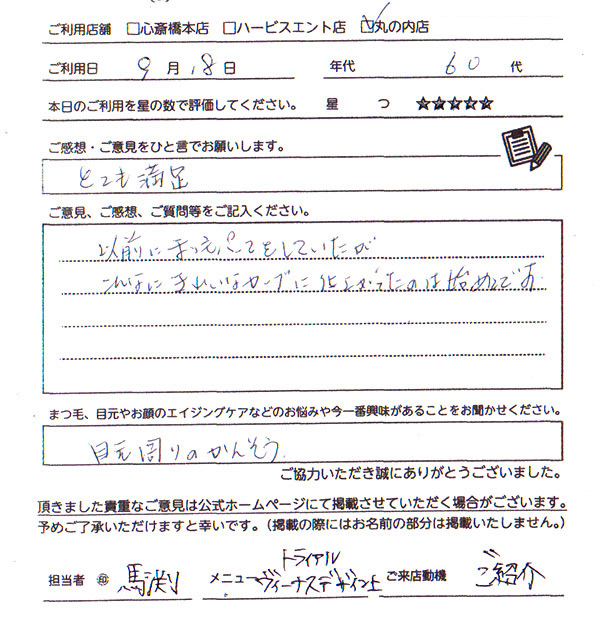 ご利用店舗 □心斎橋本店 □ハービスエント店 ☑丸の内店
ご利用日 9 月 18 日 年代 60 代
本日のご利用を星の数で評価してください。 星 つ ☆☆☆☆☆
ご感想・ご意見をひと言でお願いします。
とても満足
ご意見、ご感想、ご質問等をご記入ください。
以前にまつ毛パーマをしていたが
こんなにきれいなカーブに仕上がったのは始めてです
まつ毛、目元やお顔のエイジングケアなどのお悩みや今一番興味があることをお聞かせください。
目元周りのかんそう
ご協力いただき誠にありがとうございました。
頂きました貴重なご意見は公式ホームページにて掲載させていただく場合がございます。
予めご了承いただけますと幸いです。（掲載の際にはお名前の部分は掲載いたしません。）
トライアル
担当者 馬渕 メニュー ヴィーナスデザイン上 ご来店動機 ご紹介